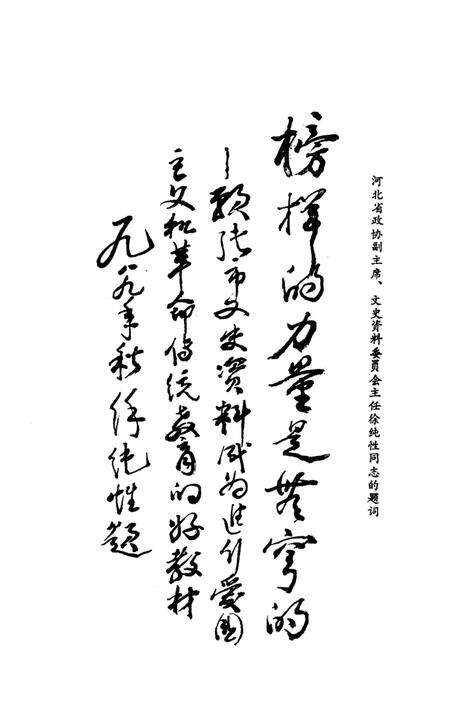 河北省政协副主席、文史資料委員会主任徐纯性同志的题词
榜样的力量是無穷的
—願张市文史资料成为進行爱国
主义和革命传统教育的好教材
一九八九年秋徐纯性题